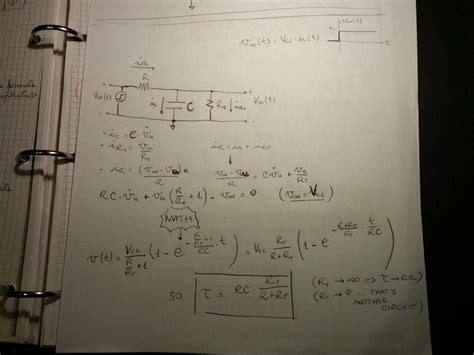 v_in(t)
v_in(t) = V_cc · u(t)
t
i_R
R
V_in(t)
i_C
C
R_T
i_RT
V_u(t)
· i_C = C v̇_u
· i_RT = v_u/R_T
i_R = i_C + i_RT
· i_R = (v_in - v_u)/R
(v_in - v_u)/R = C v̇_u + v_u/R_T
RC · v̇_u + v_u (R/R_T + 1) - v_in = 0 (v_in = V_cc)
MATH
v(t) = V_cc/(R/R_T + 1) (1 - e^(-(R/R_T + 1)/RC · t)) = V_cc · R_T/(R+R_T) (1 - e^(-(R+R_T)/R_T · t/RC))
SO τ = RC · R_T/(R+R_T)
(R_T → +∞ => τ → RC)
(R_T → 0 ... THAT'S
ANOTHER
CIRCUIT)